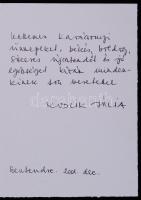 Kellemes karácsonyi
ünnepeket, békés, boldog,
sikeres újesztendőt és jó
egészséget kíván minden-
kinek sok szeretettel
KUDLIK JÚLIA
Szentendre. 2001. dec.